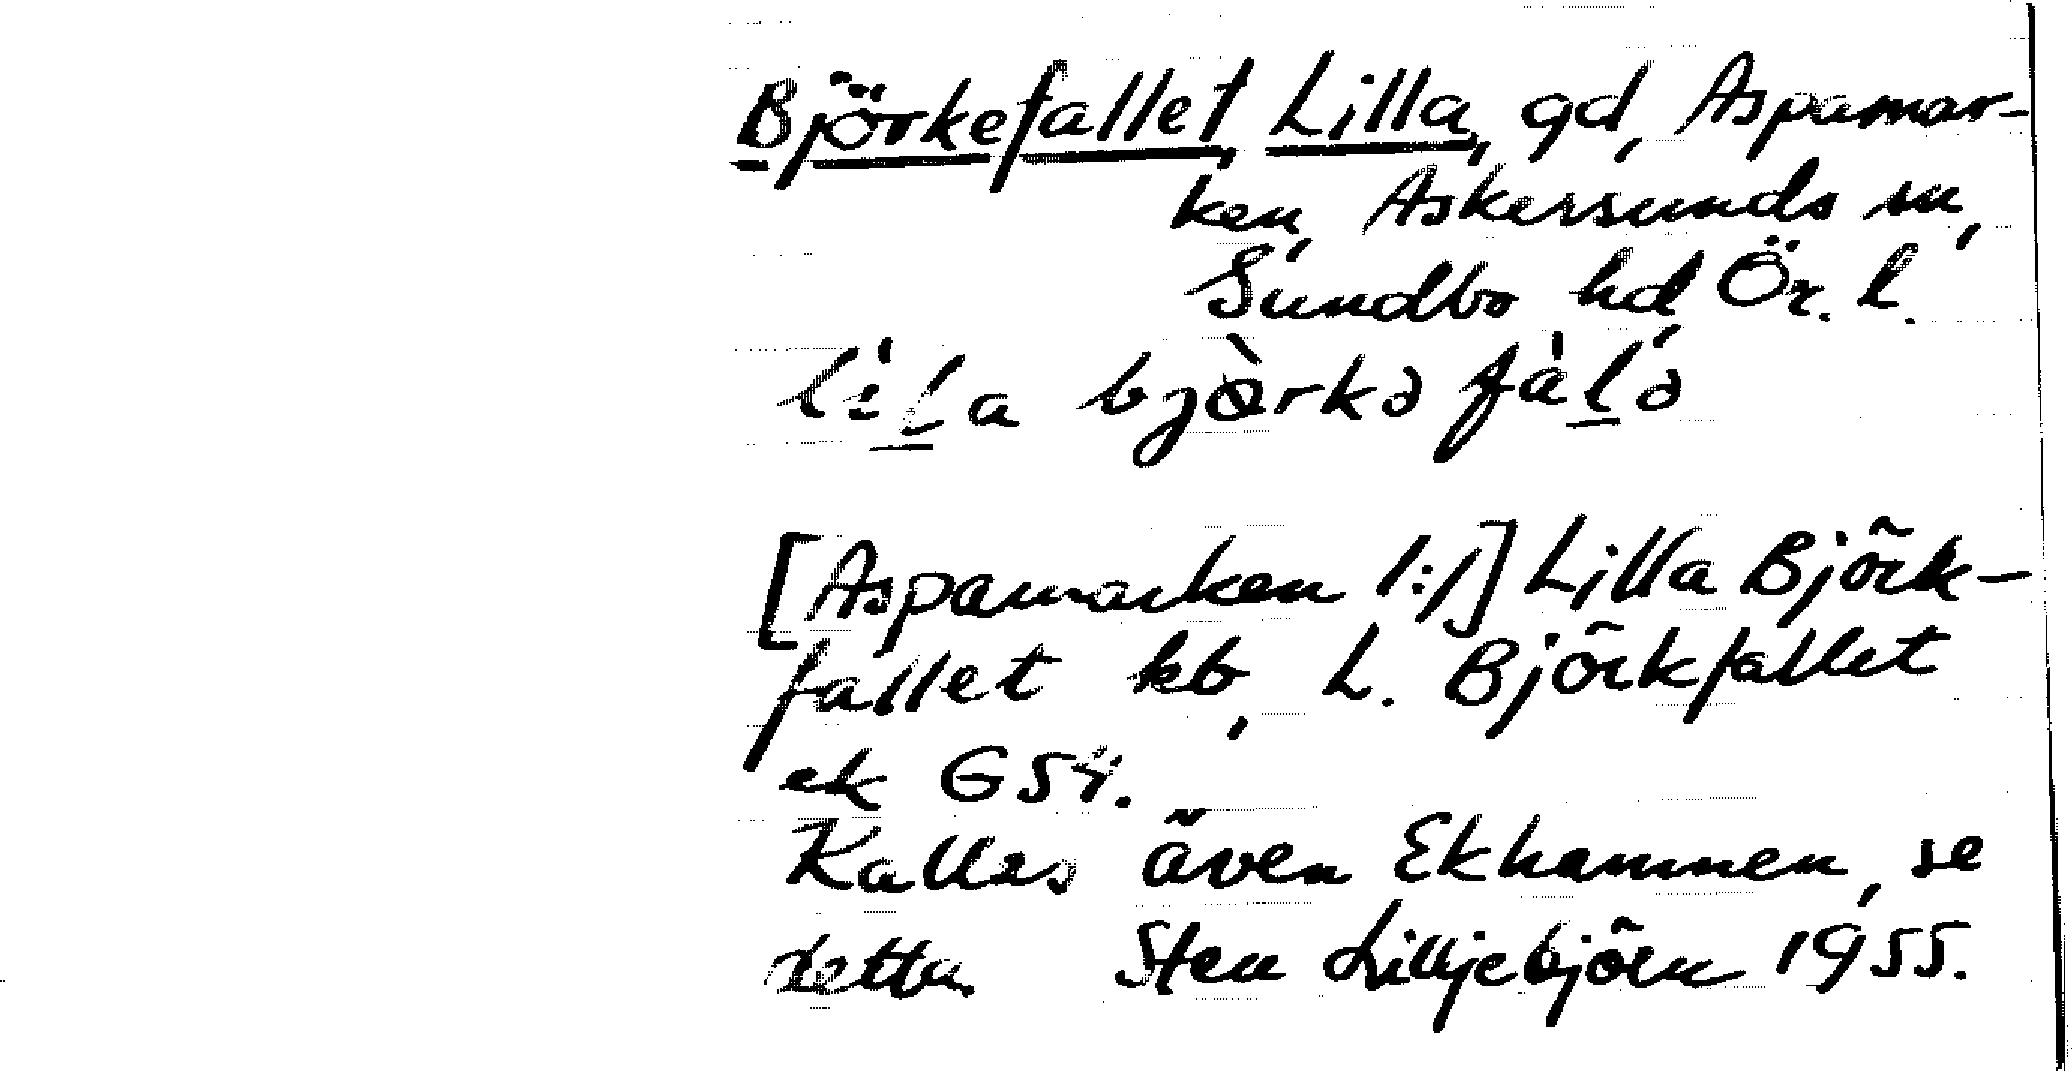 Björkefallet, Lilla, gd, Aspamar-
ken, Askersunds sn,
Sundbo hd, Ör. l.
li̇̀l̲a bjòrkə fàl̲ə
[Aspamarken 1:1] Lilla Björk-
fallet kb, L. Björkfallet
ek G54.
Kallas även Ekhammen, se
detta. Sten Lilljebjörn 1955.